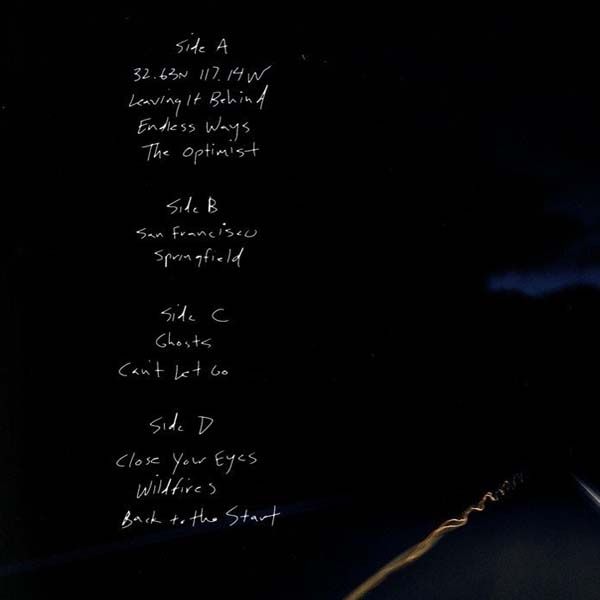 Side A
32.63N 117.14W
Leaving It Behind
Endless Ways
The Optimist
Side B
San Francisco
Springfield
Side C
Ghosts
Can't Let Go
Side D
Close Your Eyes
Wildfires
Back to the Start